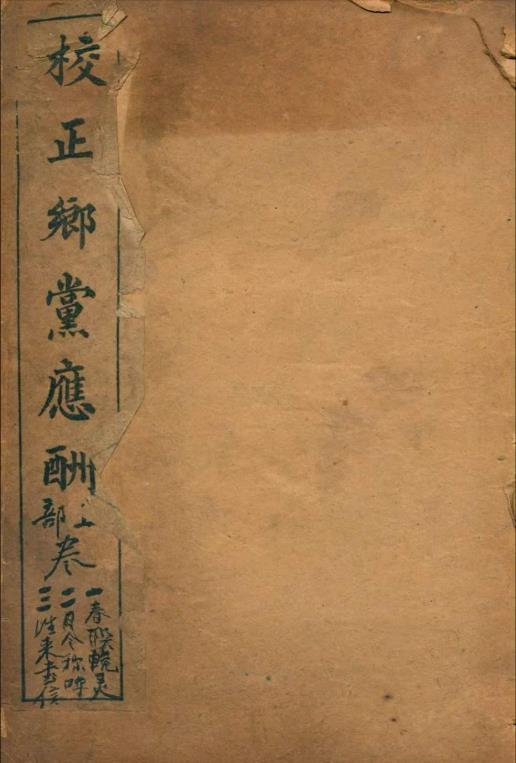 校正鄉黨應酬
上部
卷
一春聯輓灵
二月令称呼
三往来書信